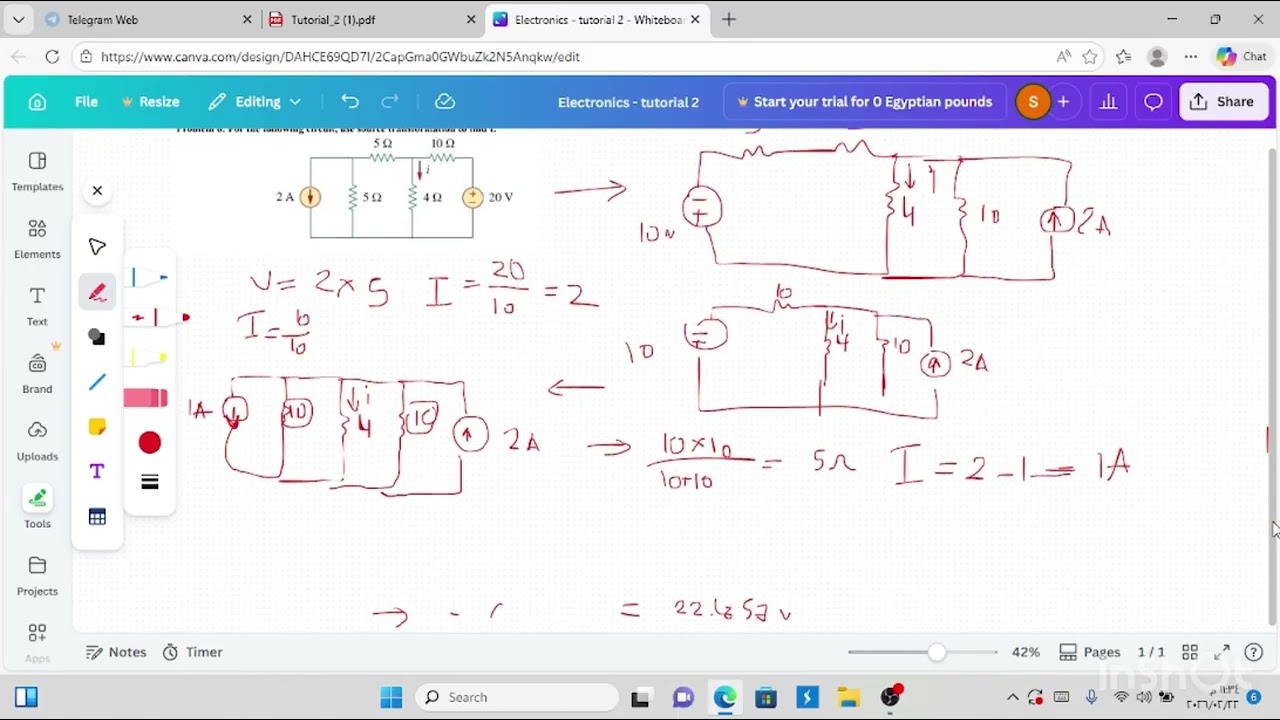 Telegram Web
Tutorial_2 (1).pdf
Electronics - tutorial 2 - Whiteboar
https://www.canva.com/design/DAHCE69QD7I/2CapGma0GWbuZk2N5Anqkw/edit
Chat
File
Resize
Editing
Electronics - tutorial 2
Start your trial for 0 Egyptian pounds
S
Share
Templates
Elements
Text
Brand
Uploads
Tools
Projects
Apps
5 Ω 10 Ω
2 A 5 Ω i 4 Ω 20 V
10 v 4 10 2A
V = 2 × 5 I = 20/10 = 2
10
10 i 4 10 2A
1A 10 i 4 10 2A
10×10/10+10 = 5Ω I = 2 - 1 = 1A
Notes
Timer
42%
Pages
1 / 1
Search
InShOt
6